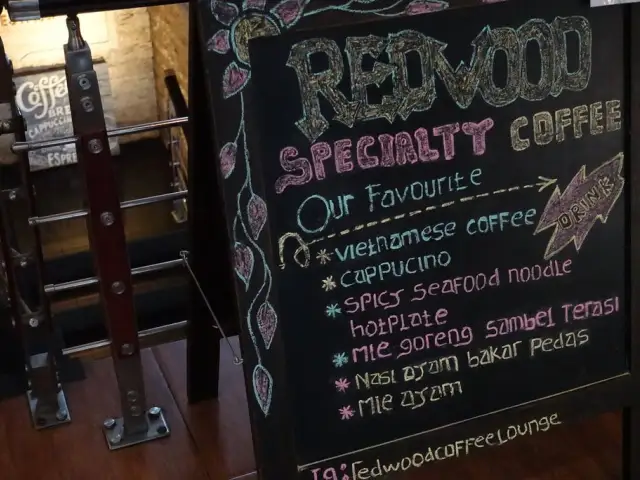 Coffee
BRE
CAPPUCC
ESPRE
REDWOOD
SPECIALTY COFFEE
Our Favourite
DRINK
* Vietnamese coffee
* cappucino
* spicy seafood noodle
hotplate
* Mie goreng sambel Terasi
* Nasi ayam bakar pedas
* Mie ayam
IG: redwoodcoffeelounge